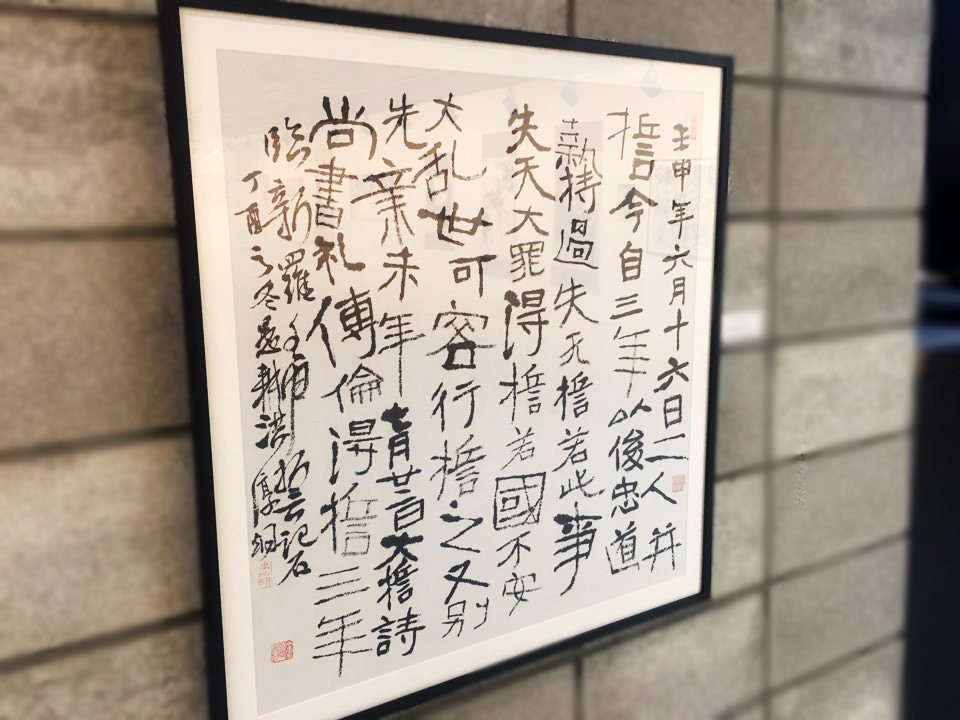 壬申年六月十六日二人并
誓今自三年以後忠道
執持過失无誓若此事
失天大罪得誓若國不安
大乱世可容行誓之又別
先辛未年七月廿二日大誓詩
尚書礼傳倫得誓三年
臨新羅壬申誓記石
丁酉之冬